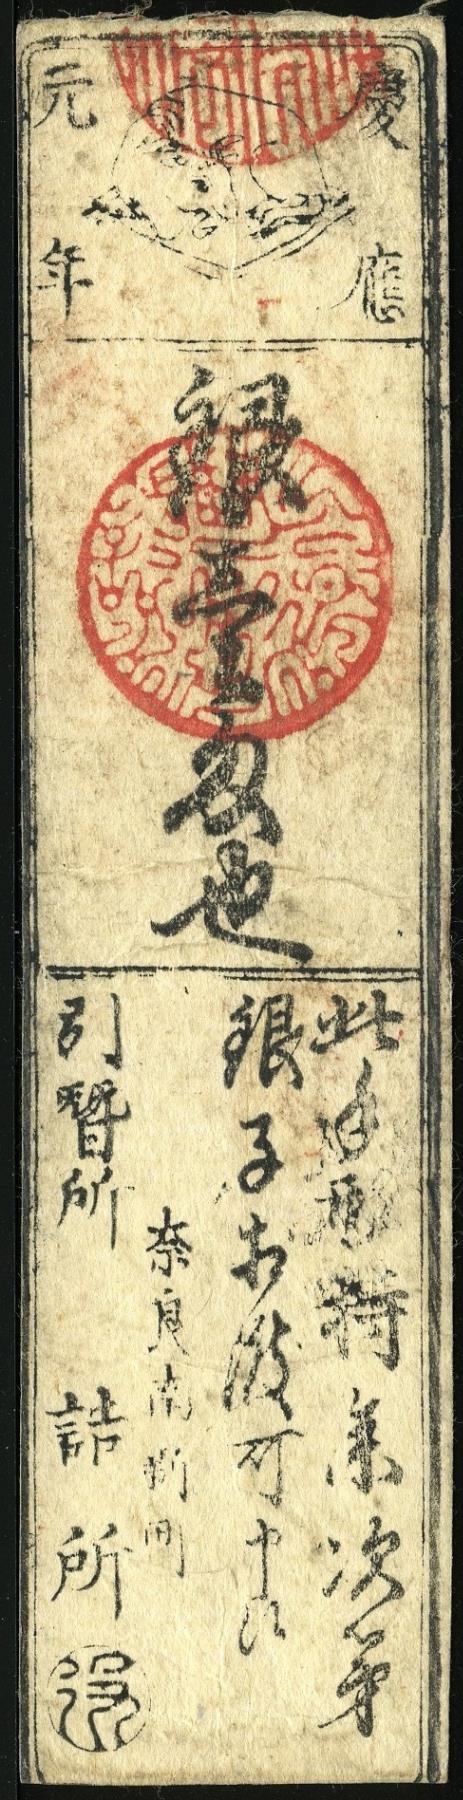 慶應
元年
銀壹匁也
此手形持参次第
銀子相渡可申候
奈良南新間
引替所 詰所